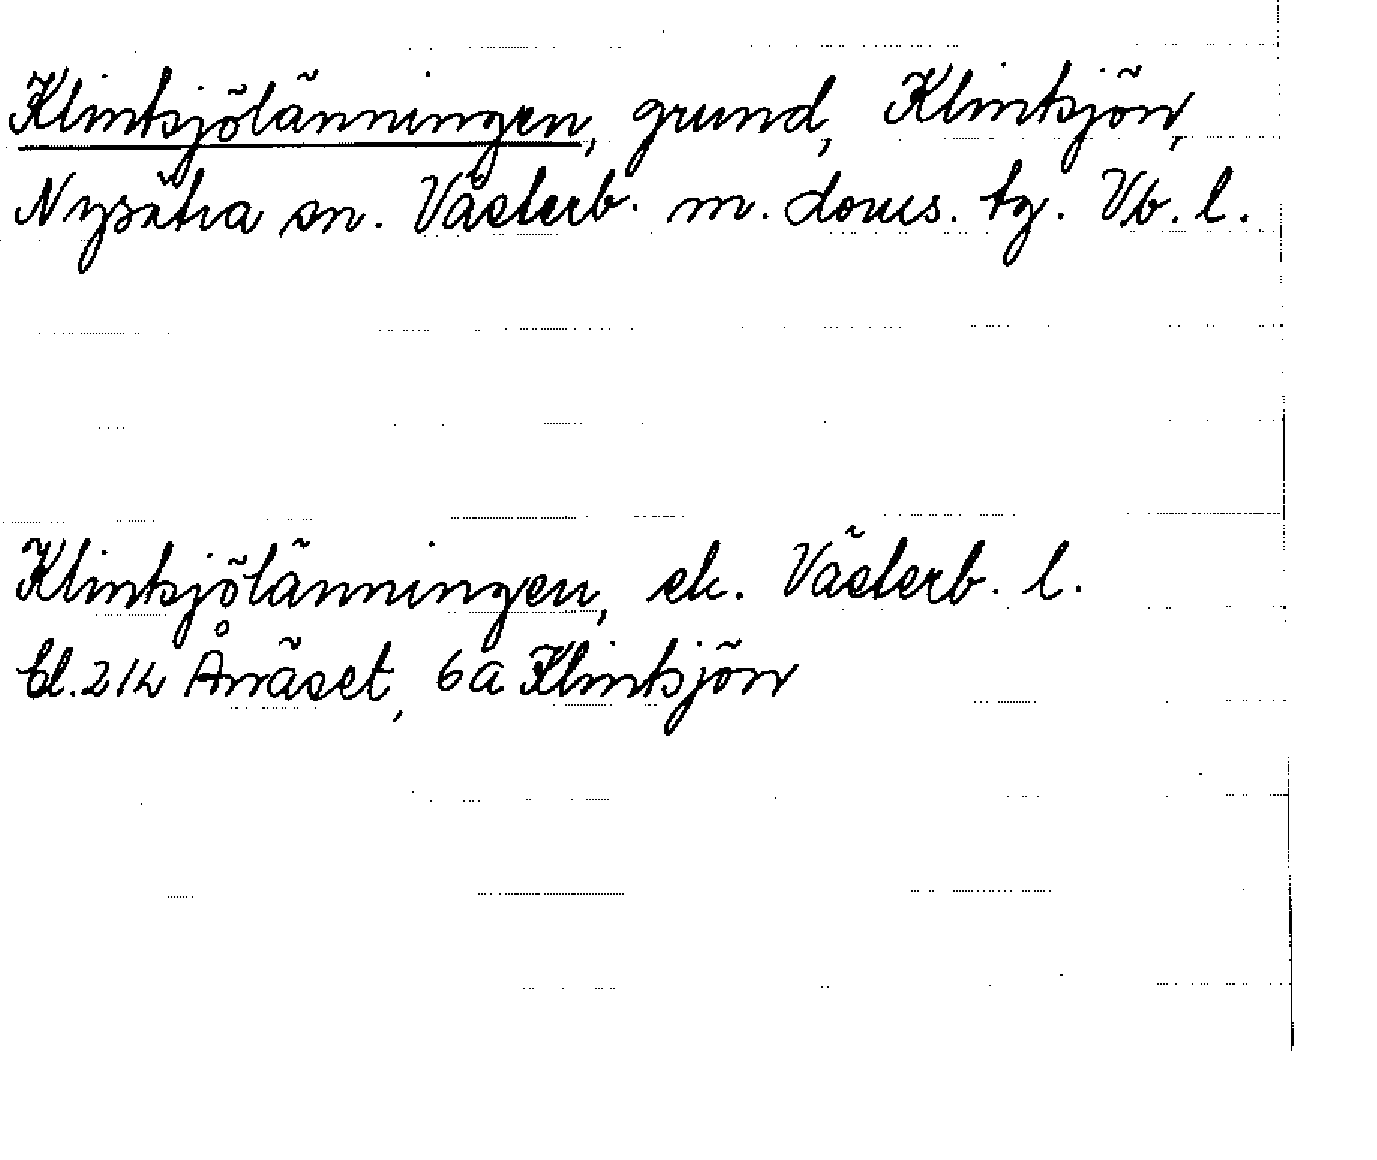 Klintsjölänningen, grund, Klintsjön,
Nysätra sn. Västerb. m. doms. tg. Vb. l.
Klintsjölänningen, ek. Västerb. l.
bl. 21h Ånäset, 6a Klintsjön